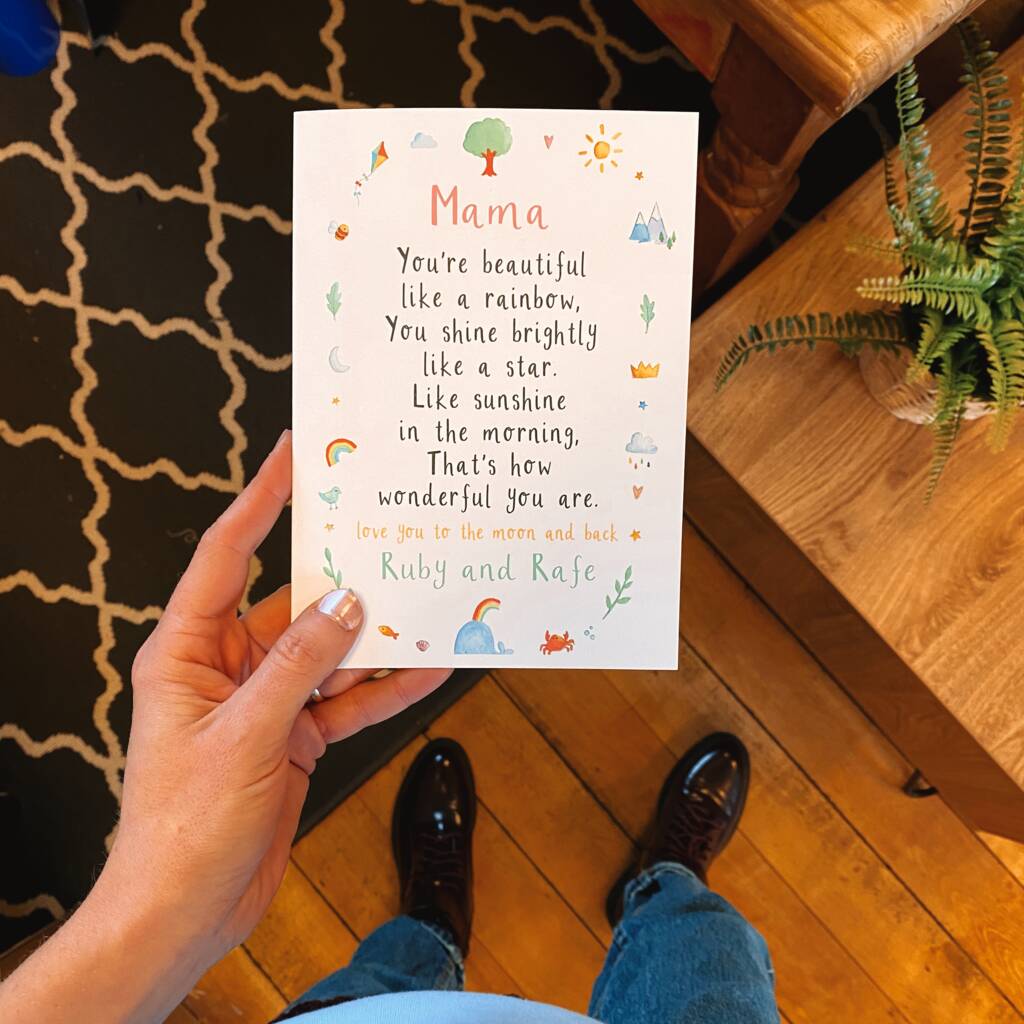 Mama
You're beautiful
like a rainbow,
You shine brightly
like a star.
Like sunshine
in the morning,
That's how
wonderful you are.
love you to the moon and back
Ruby and Rafe